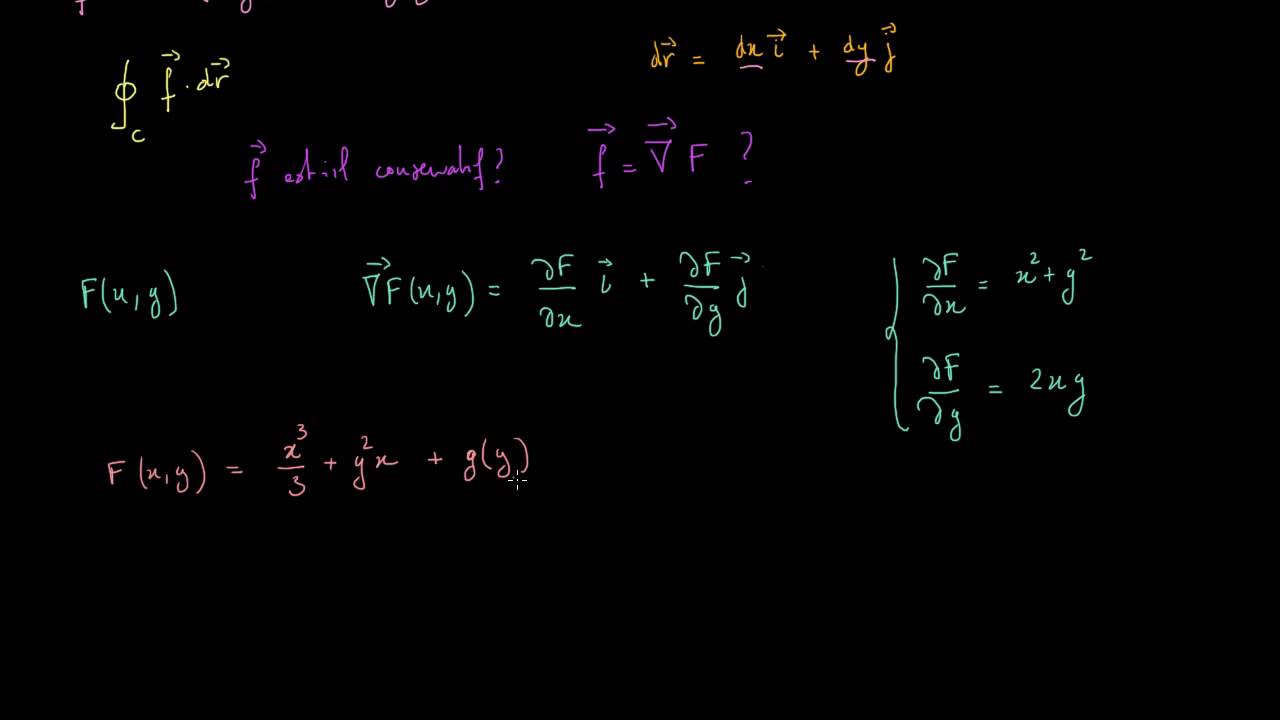 ∮_C f⃗ · dr⃗
dr⃗ = dx i⃗ + dy j⃗
f⃗ est-il conservatif? f⃗ = ∇⃗ F ?
F(x,y) ∇⃗F(x,y) = ∂F/∂x i⃗ + ∂F/∂y j⃗
∂F/∂x = x² + y²
∂F/∂y = 2xy
F(x,y) = x³/3 + y²x + g(y)